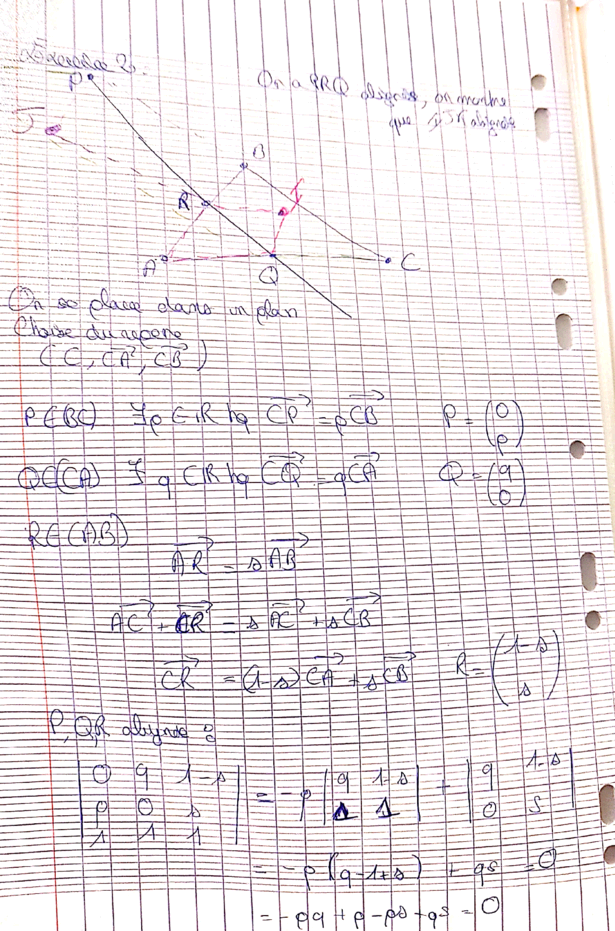 Exercice 2:
On a PRQ alignés, on montre
que IJK alignés
P
J
B
R
I
A
Q
C
On se place dans un plan
Choix du repère
(C, \overrightarrow{CA}, \overrightarrow{CB})
P∈(BC) ∃p∈ℝ tq \overrightarrow{CP} = p\overrightarrow{CB} P = \begin{pmatrix} 0 \\ p \end{pmatrix}
Q∈(CA) ∃ q∈ℝ tq \overrightarrow{CQ} = q\overrightarrow{CA} Q = \begin{pmatrix} q \\ 0 \end{pmatrix}
R∈(AB)
\overrightarrow{AR} = s\overrightarrow{AB}
\overrightarrow{AC} + \overrightarrow{CR} = s\overrightarrow{AC} + s\overrightarrow{CB}
\overrightarrow{CR} = (1-s)\overrightarrow{CA} + s\overrightarrow{CB} R = \begin{pmatrix} 1-s \\ s \end{pmatrix}
P, Q, R alignés :
\begin{vmatrix} 0 & q & 1-s \\ p & 0 & s \\ 1 & 1 & 1 \end{vmatrix} = -p \begin{vmatrix} q & 1-s \\ 1 & 1 \end{vmatrix} + \begin{vmatrix} q & 1-s \\ 0 & s \end{vmatrix}
= -p(q-1+s) + qs = 0
= -pq + p - ps + qs = 0